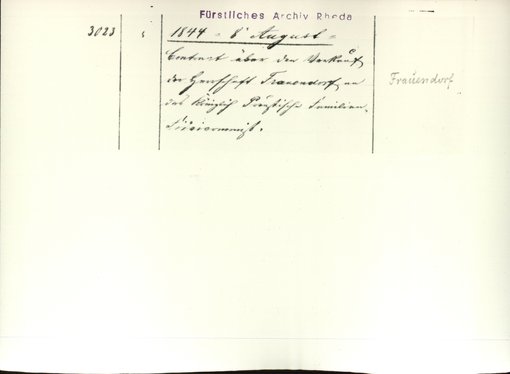 Fürstliches Archiv Rheda
3023
1844 - 8' August -
Contract über den Verkauf
der Herrschaft Frauendorf an
das Königlich Preußische Familien-
Fideicommiß.
Frauendorf